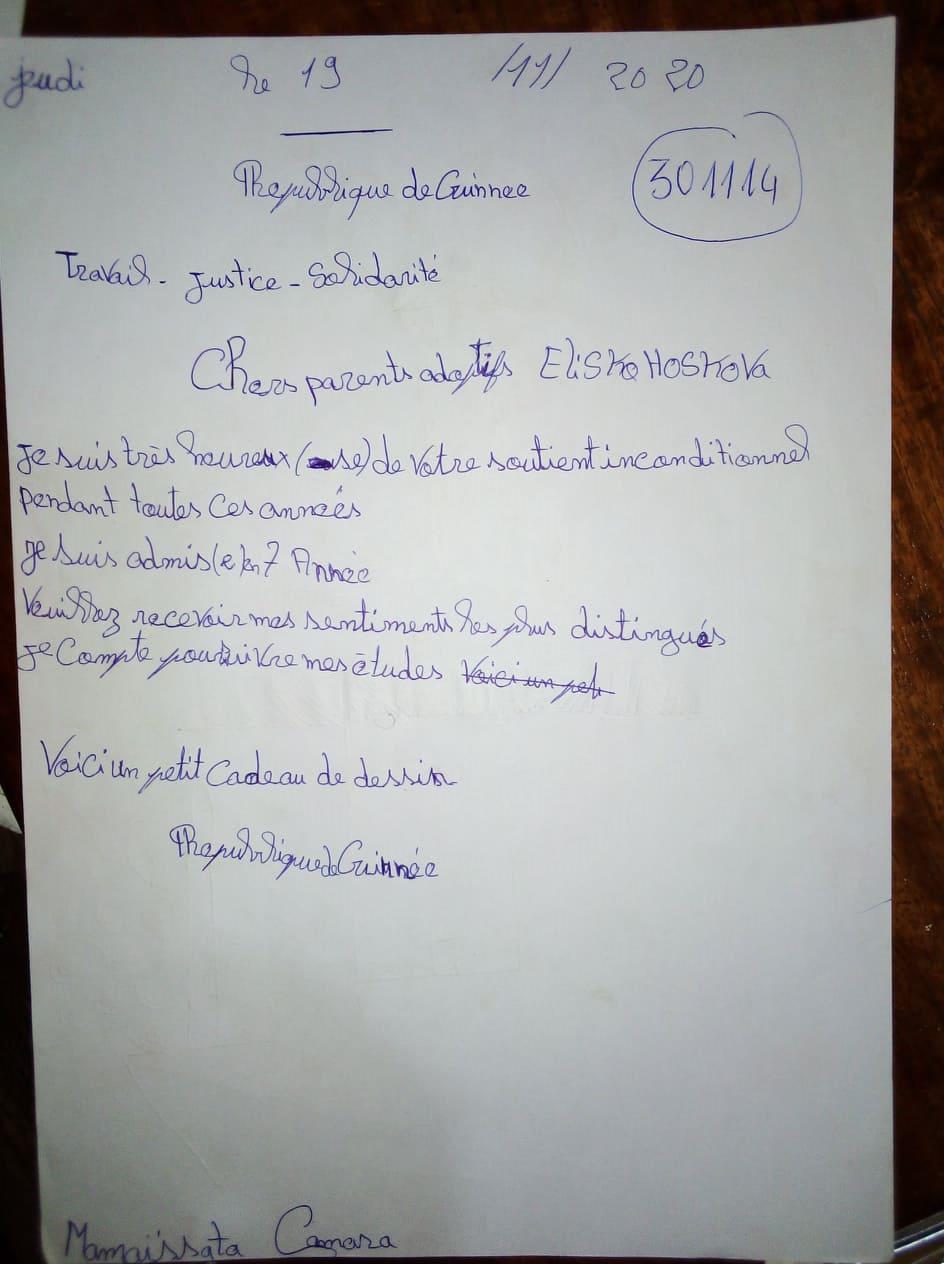 jeudi le 19 /11/ 2020
Republique de Guinnee
301114
Travail - Justice - Solidarité
Chers parents adoptifs Eliska HOSKOVa
Je suis très heureux (se) de votre soutient inconditionnel
pendant toutes ces années
Je suis admis(e) en 7 Année
Veuillez recevoir mes sentiments les plus distingués
Je Compte poursuivre mes études Voici un peti
Voici un petit Cadeau de dessin
Republique de Guinnée
Mamaissata Camara